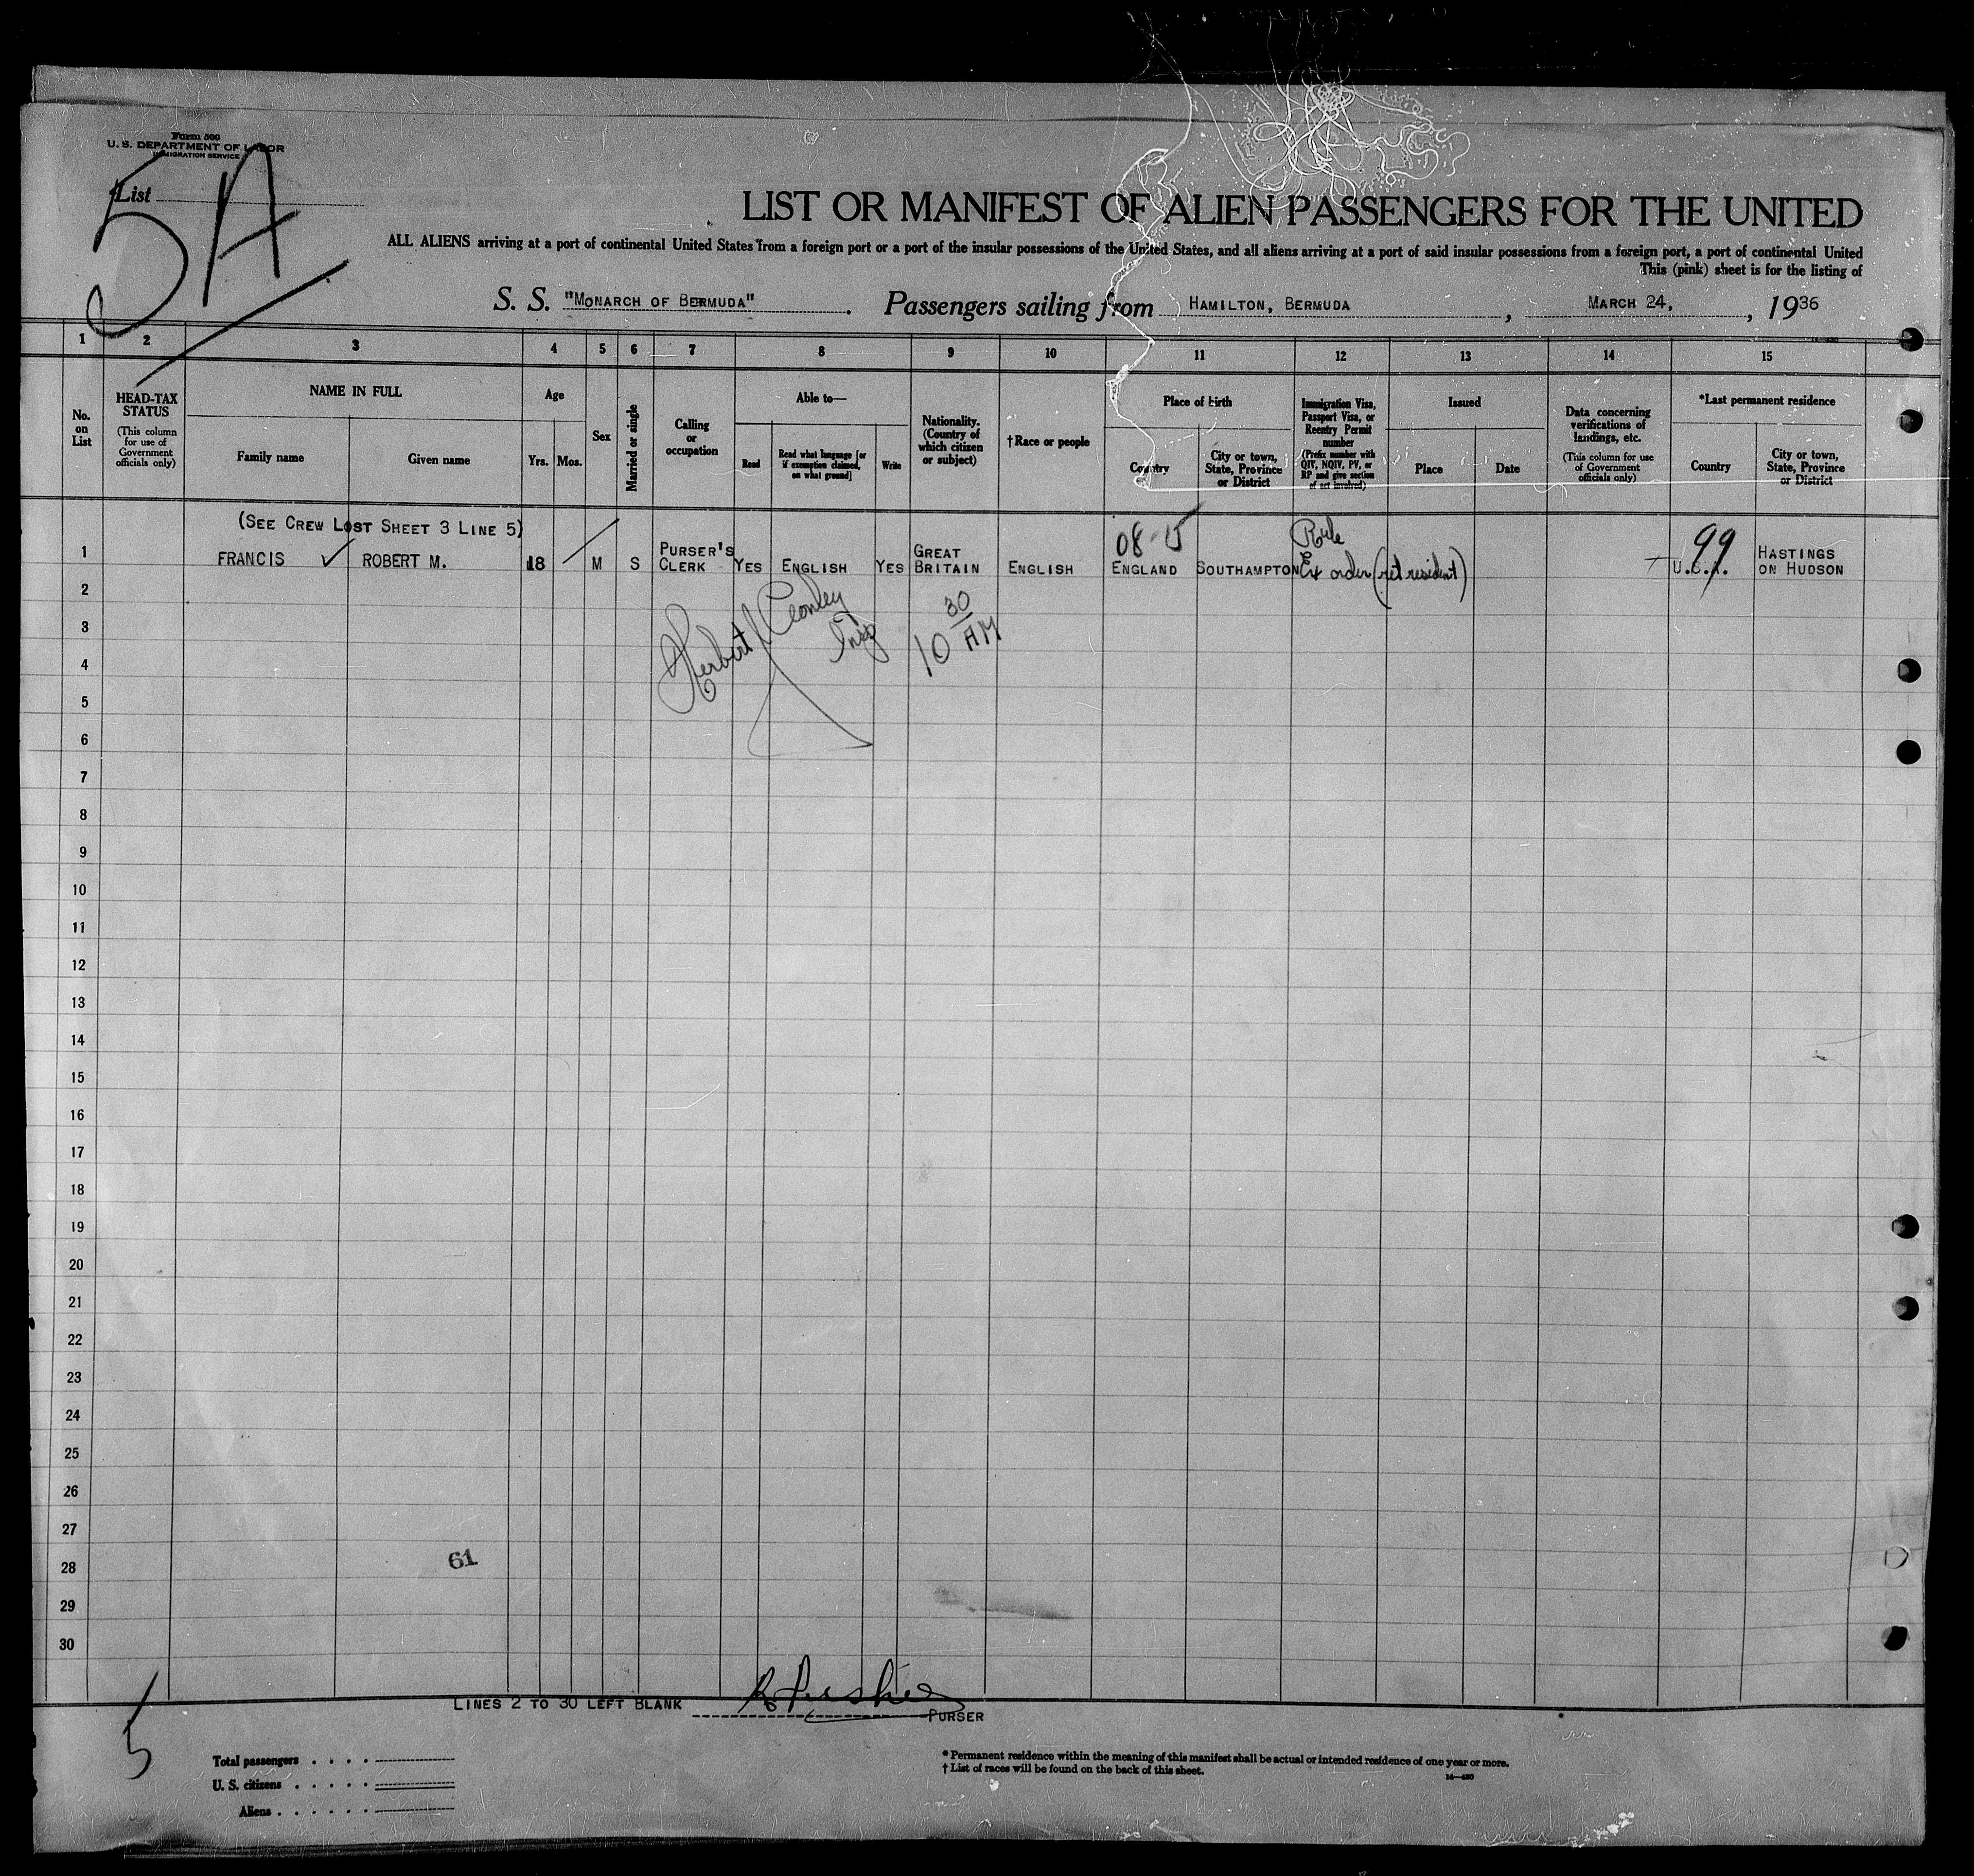 Form 500
U. S. DEPARTMENT OF LABOR
IMMIGRATION SERVICE
List
5A
LIST OR MANIFEST OF ALIEN PASSENGERS FOR THE UNITED
ALL ALIENS arriving at a port of continental United States from a foreign port or a port of the insular possessions of the United States, and all aliens arriving at a port of said insular possessions from a foreign port, a port of continental United
This (pink) sheet is for the listing of
S. S. "MONARCH OF BERMUDA". Passengers sailing from HAMILTON, BERMUDA, MARCH 24, , 1936
1 2 3 4 5 6 7 8 9 10 11 12 13 14 15
No. on List
HEAD-TAX STATUS
(This column for use of Government officials only)
NAME IN FULL
Family name
Given name
Age
Yrs.
Mos.
Sex
Married or single
Calling or occupation
Able to—
Read
Read what language [or if exemption claimed, on what ground]
Write
Nationality. (Country of which citizen or subject)
†Race or people
Place of birth
Country
City or town, State, Province or District
Immigration Visa, Passport Visa, or Reentry Permit number
(Prefix number with QIV, NQIV, PV, or RP and give section of act involved)
Issued
Place
Date
Data concerning verifications of landings, etc.
(This column for use of Government officials only)
*Last permanent residence
Country
City or town, State, Province or District
(SEE CREW LOST SHEET 3 LINE 5)
1 FRANCIS ✓ ROBERT M. 18 M S PURSER'S CLERK YES ENGLISH YES GREAT BRITAIN ENGLISH ENGLAND SOUTHAMPTON Ex order (ret resident) U.S.A. HASTINGS ON HUDSON
99
Herbert
Insp
10 30 AM
2
3
4
5
6
7
8
9
10
11
12
13
14
15
16
17
18
19
20
21
22
23
24
25
26
27
28
29
30
61
LINES 2 TO 30 LEFT BLANK
PURSER
5
Total passengers . . . .
U. S. citizens . . . . .
Aliens . . . . . .
* Permanent residence within the meaning of this manifest shall be actual or intended residence of one year or more.
† List of races will be found on the back of this sheet.